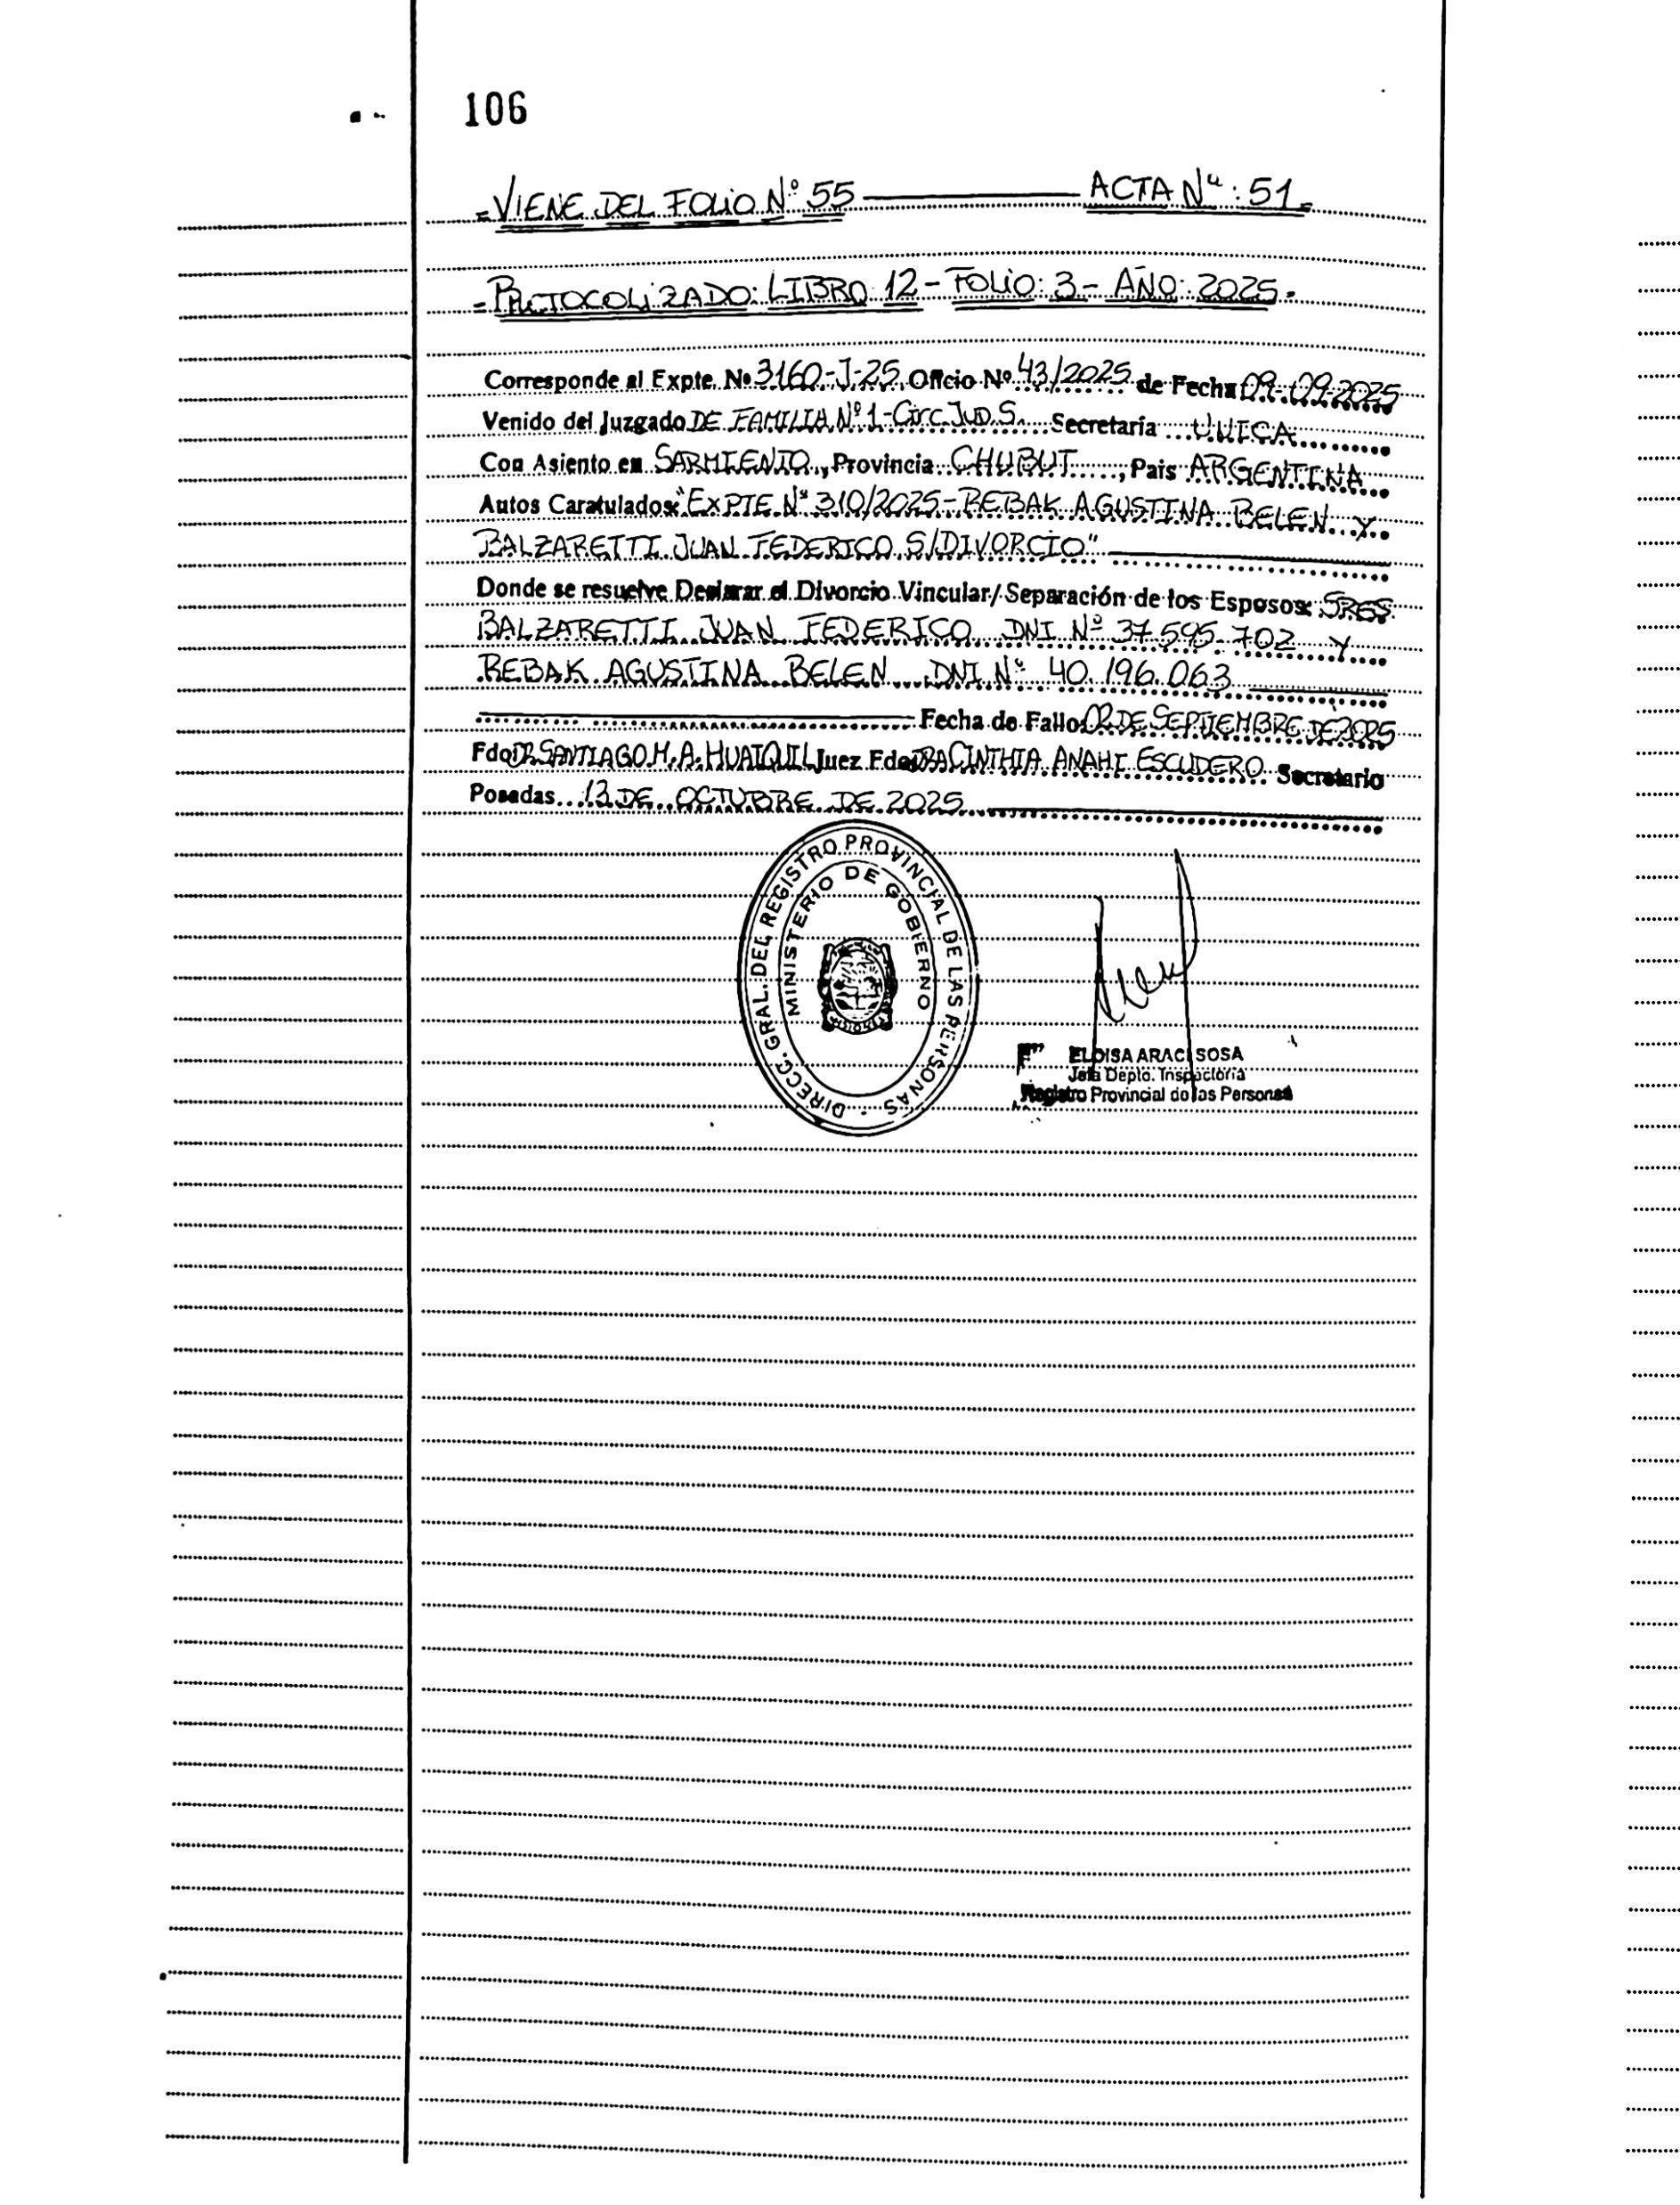 106
= VIENE DEL FOLIO Nº 55 ACTA Nº: 51 =
= PROTOCOLIZADO: LIBRO 12 - FOLIO: 3 - AÑO: 2025 .
Corresponde al Expte. Nº 3160-J-25, Oficio Nº 43/2025 de Fecha 09-09-2025
Venido del Juzgado DE FAMILIA Nº 1 - Circ. JUD. S. Secretaria UNICA
Con Asiento en SARMIENTO, Provincia CHUBUT, Pais ARGENTINA
Autos Caratulados: "EXPTE Nº 310/2025 - REBAK AGUSTINA BELEN Y
BALZARETTI JUAN FEDERICO S/DIVORCIO"
Donde se resuelve Declarar el Divorcio Vincular/Separación de los Esposos: SRES
BALZARETTI JUAN FEDERICO DNI Nº 37.595.702 Y
REBAK AGUSTINA BELEN DNI Nº 40.196.063
Fecha de Fallo: 02 DE SEPTIEMBRE DE 2025
Fdo: DR SANTIAGO M. A. HUAIQUIL Juez Fdo: DRA CINTHIA ANAHI ESCUDERO Secretario
Posadas 13 DE OCTUBRE DE 2025
DIRECC. GRAL. DEL REGISTRO PROVINCIAL DE LAS PERSONAS
MINISTERIO DE GOBIERNO
MISIONES
ELOISA ARACI SOSA
Jefa Depto. Inspectoria
Registro Provincial de las Personas